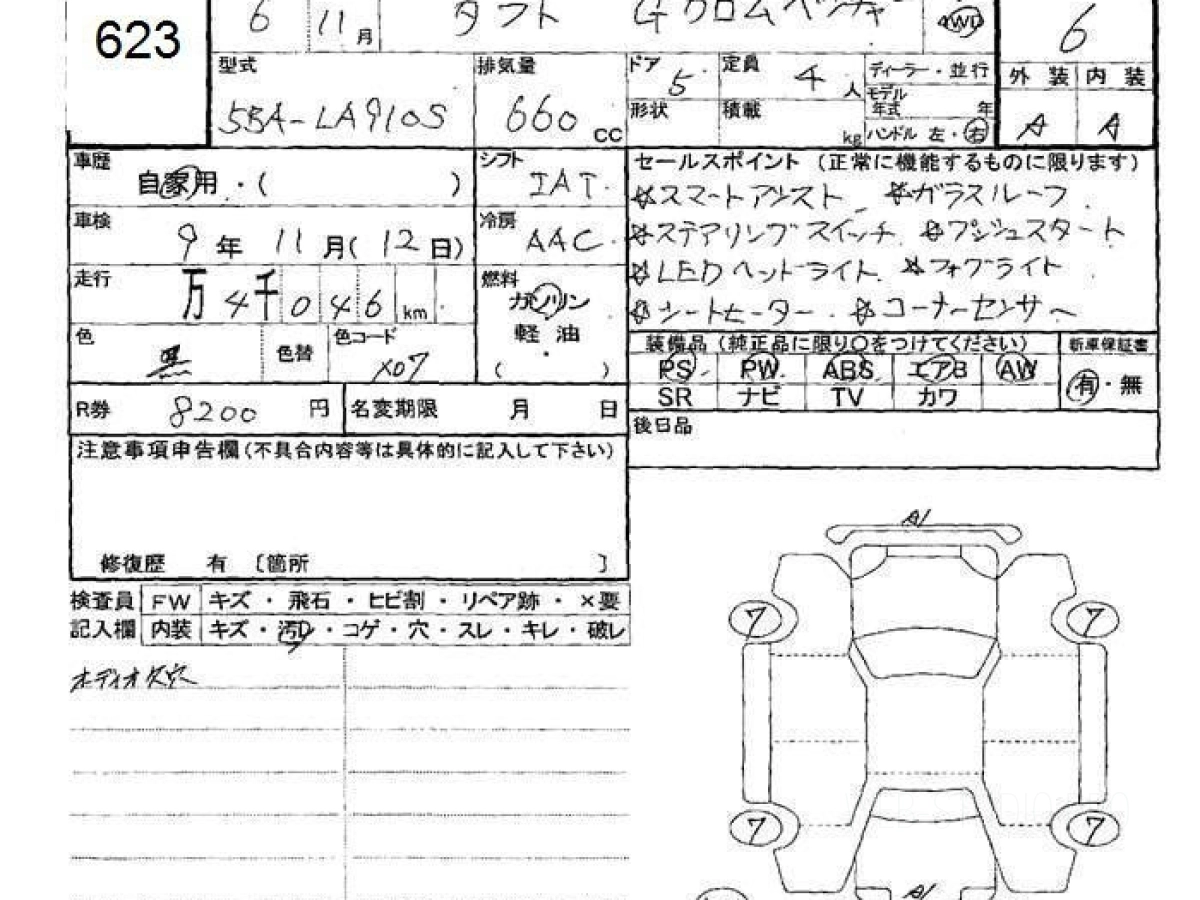 623
6 11月 タフト Gクロムベンチャー 4WD 6
型式 排気量 ドア 5 定員 4 人 ディーラー・並行 外装 内装
5BA-LA910S 660 cc 形状 積載 kg モデル年式 年 A A
ハンドル 左・右
車歴 自家用・( ) シフト IAT セールスポイント (正常に機能するものに限ります)
☆スマートアシスト ☆ガラスルーフ
車検 9年 11月(12日) 冷房 AAC ☆ステアリングスイッチ ☆プッシュスタート
走行 万 4千 0 4 6 km 燃料 ガソリン ☆LEDヘッドライト ☆フォグライト
軽油 ☆シートヒーター ☆コーナーセンサー
色 黒 色替 色コード X07 ・ ( ) 装備品 (純正品に限り○をつけてください) 新車保証書
PS PW ABS エアB AW 有・無
R券 8200 円 名変期限 月 日 SR ナビ TV カワ
注意事項申告欄(不具合内容等は具体的に記入して下さい) 後日品
修復歴 有 〔箇所 〕
A1
検査員 FW キズ・飛石・ヒビ割・リペア跡・×要
記入欄 内装 キズ・汚レ・コゲ・穴・スレ・キレ・破レ
7 7
オーディオ欠穴
7 7
A1